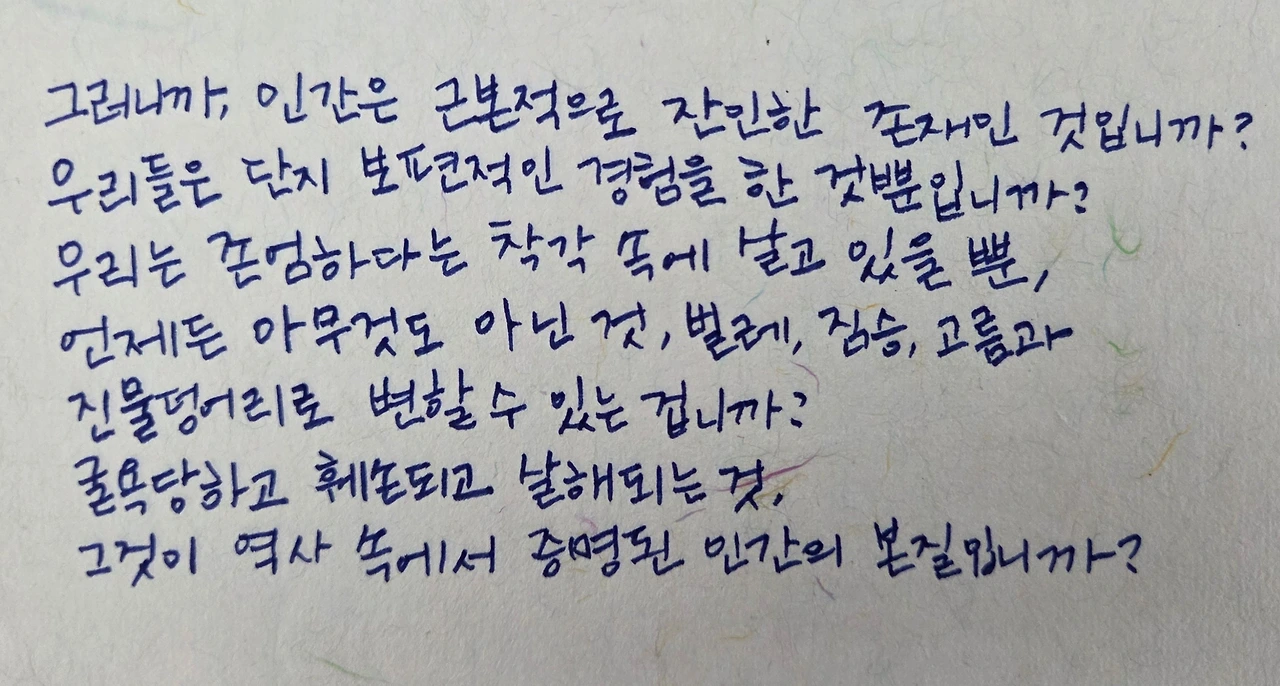 그러니까, 인간은 근본적으로 잔인한 존재인 것입니까?
우리들은 단지 보편적인 경험을 한 것뿐입니까?
우리는 존엄하다는 착각 속에 살고 있을 뿐,
언제든 아무것도 아닌 것, 벌레, 짐승, 고름과
진물덩어리로 변할 수 있는 겁니까?
굴욕당하고 훼손되고 살해되는 것,
그것이 역사 속에서 증명된 인간의 본질입니까?